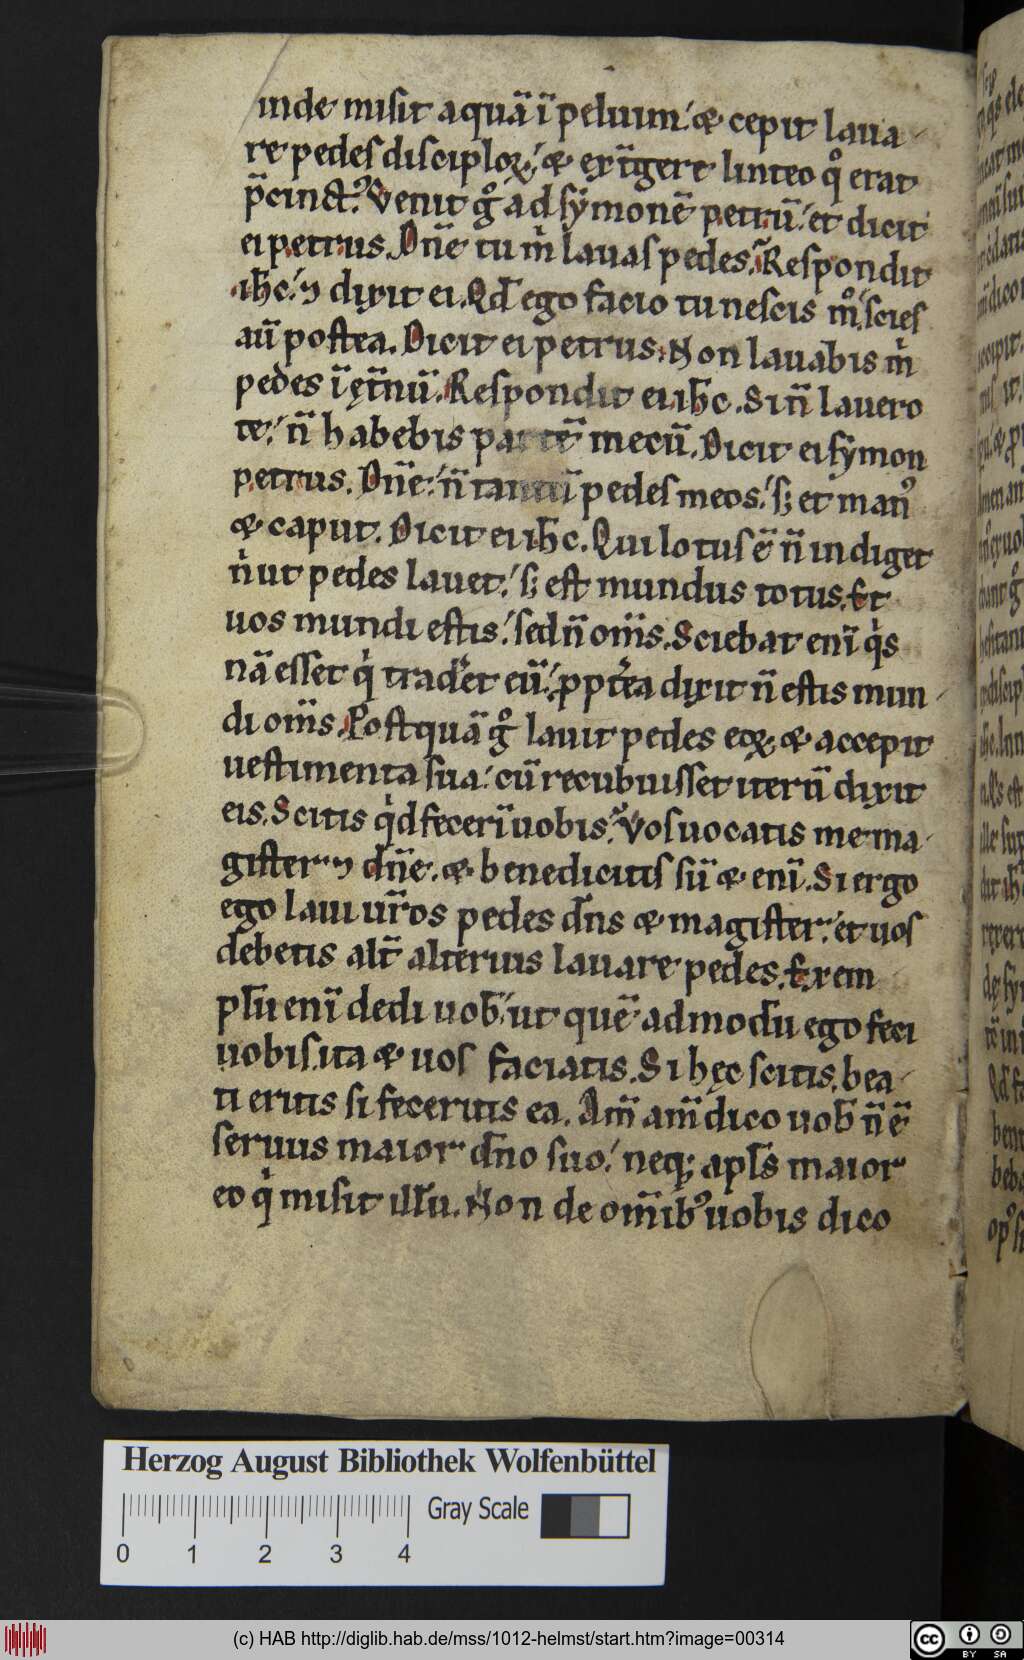 inde misit aquā ī peluim. & cepit laua
re pedes disciploꝝ, & extˉgere linteo qͦ erat
p̄cinctꝰ. Venit gͦ ad sẏmonē petrū. et dicit
ei petrus. Dn̄e tu m̊ lauas pedes. Respondit
ihc̄. ⁊ dixit ei. Qđ ego facio tu nescis mͦ. scies
aū postea. Dicit ei petrus. Non lauabis m̊
pedes ī ęt̄nū. Respondit ei ihc̄. Si n̄ lauero
te. n̄ habebis partē mecū. Dicit ei sẏmon
petrus. Dn̄e. n̄ tantū pedes meos. s; et manꝰ
& caput. Dicit ei ihc̄. Qui lotus ē n̄ indiget
nͥ ut pedes lauet. s; est mundus totus. Et
uos mundi estis. sed n̄ om̄s. Sciebat enī qͥs
nā esset qͥ traderet eū. ꝓpterea dixit n̄ estis mun
di om̄s. Postquā gͦ lauit pedes eoꝝ & accepit
uestimenta sua. cū recubuisset iterū dixit
eis. Scitis qͥd fecerī uobis. Vos uocatis me ma
gister ⁊ dn̄e. & benedicitis sū & enī. Si ergo
ego laui ur̄os pedes dn̄s & magister. et uos
debetis alt̄ alterius lauare pedes. Exem
plū enī dedi uob̄. ut quē admodū ego feci
uobis. ita & uos faciatis. Si hęc scitis. bea
ti eritis si feceritis ea. Am̄ am̄ dico uob̄ n̄ ē
seruus maior dn̄o suo. neq; apl̄s maior
eo qͥ misit illū. Non de om̄ibꝰ uobis dico
Herzog August Bibliothek Wolfenbüttel
Gray Scale
0 1 2 3 4
(c) HAB http://diglib.hab.de/mss/1012-helmst/start.htm?image=00314
cc BY SA